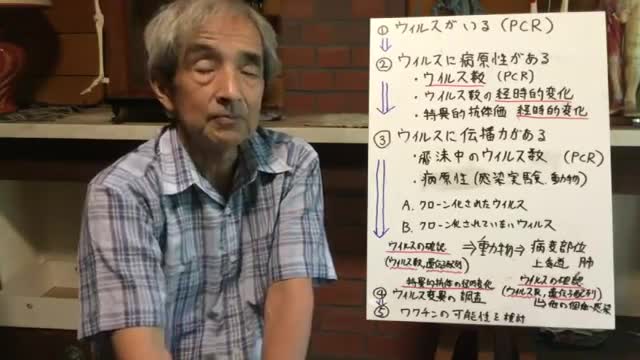 ① ウィルスがいる (PCR)
② ウィルスに病原性がある
・ウィルス数 (PCR)
・ウィルス数の経時的変化
・特異的抗体価 経時的変化
③ ウィルスに伝播力がある
・飛沫中のウィルス数 (PCR)
・病原性 (感染実験、動物)
A. クローン化されたウィルス
B. クローン化されていないウィルス
ウィルスの確認 ⇒ 動物 ⇒ 病変部位
(ウィルス数、遺伝子配列) 上気道 肺
特異的抗体の経時変化 ウィルスの確認
(ウィルス数、遺伝子配列)
④ ウィルス変異の調査 他の個体へ感染
⑤ ワクチンの可能性を検討